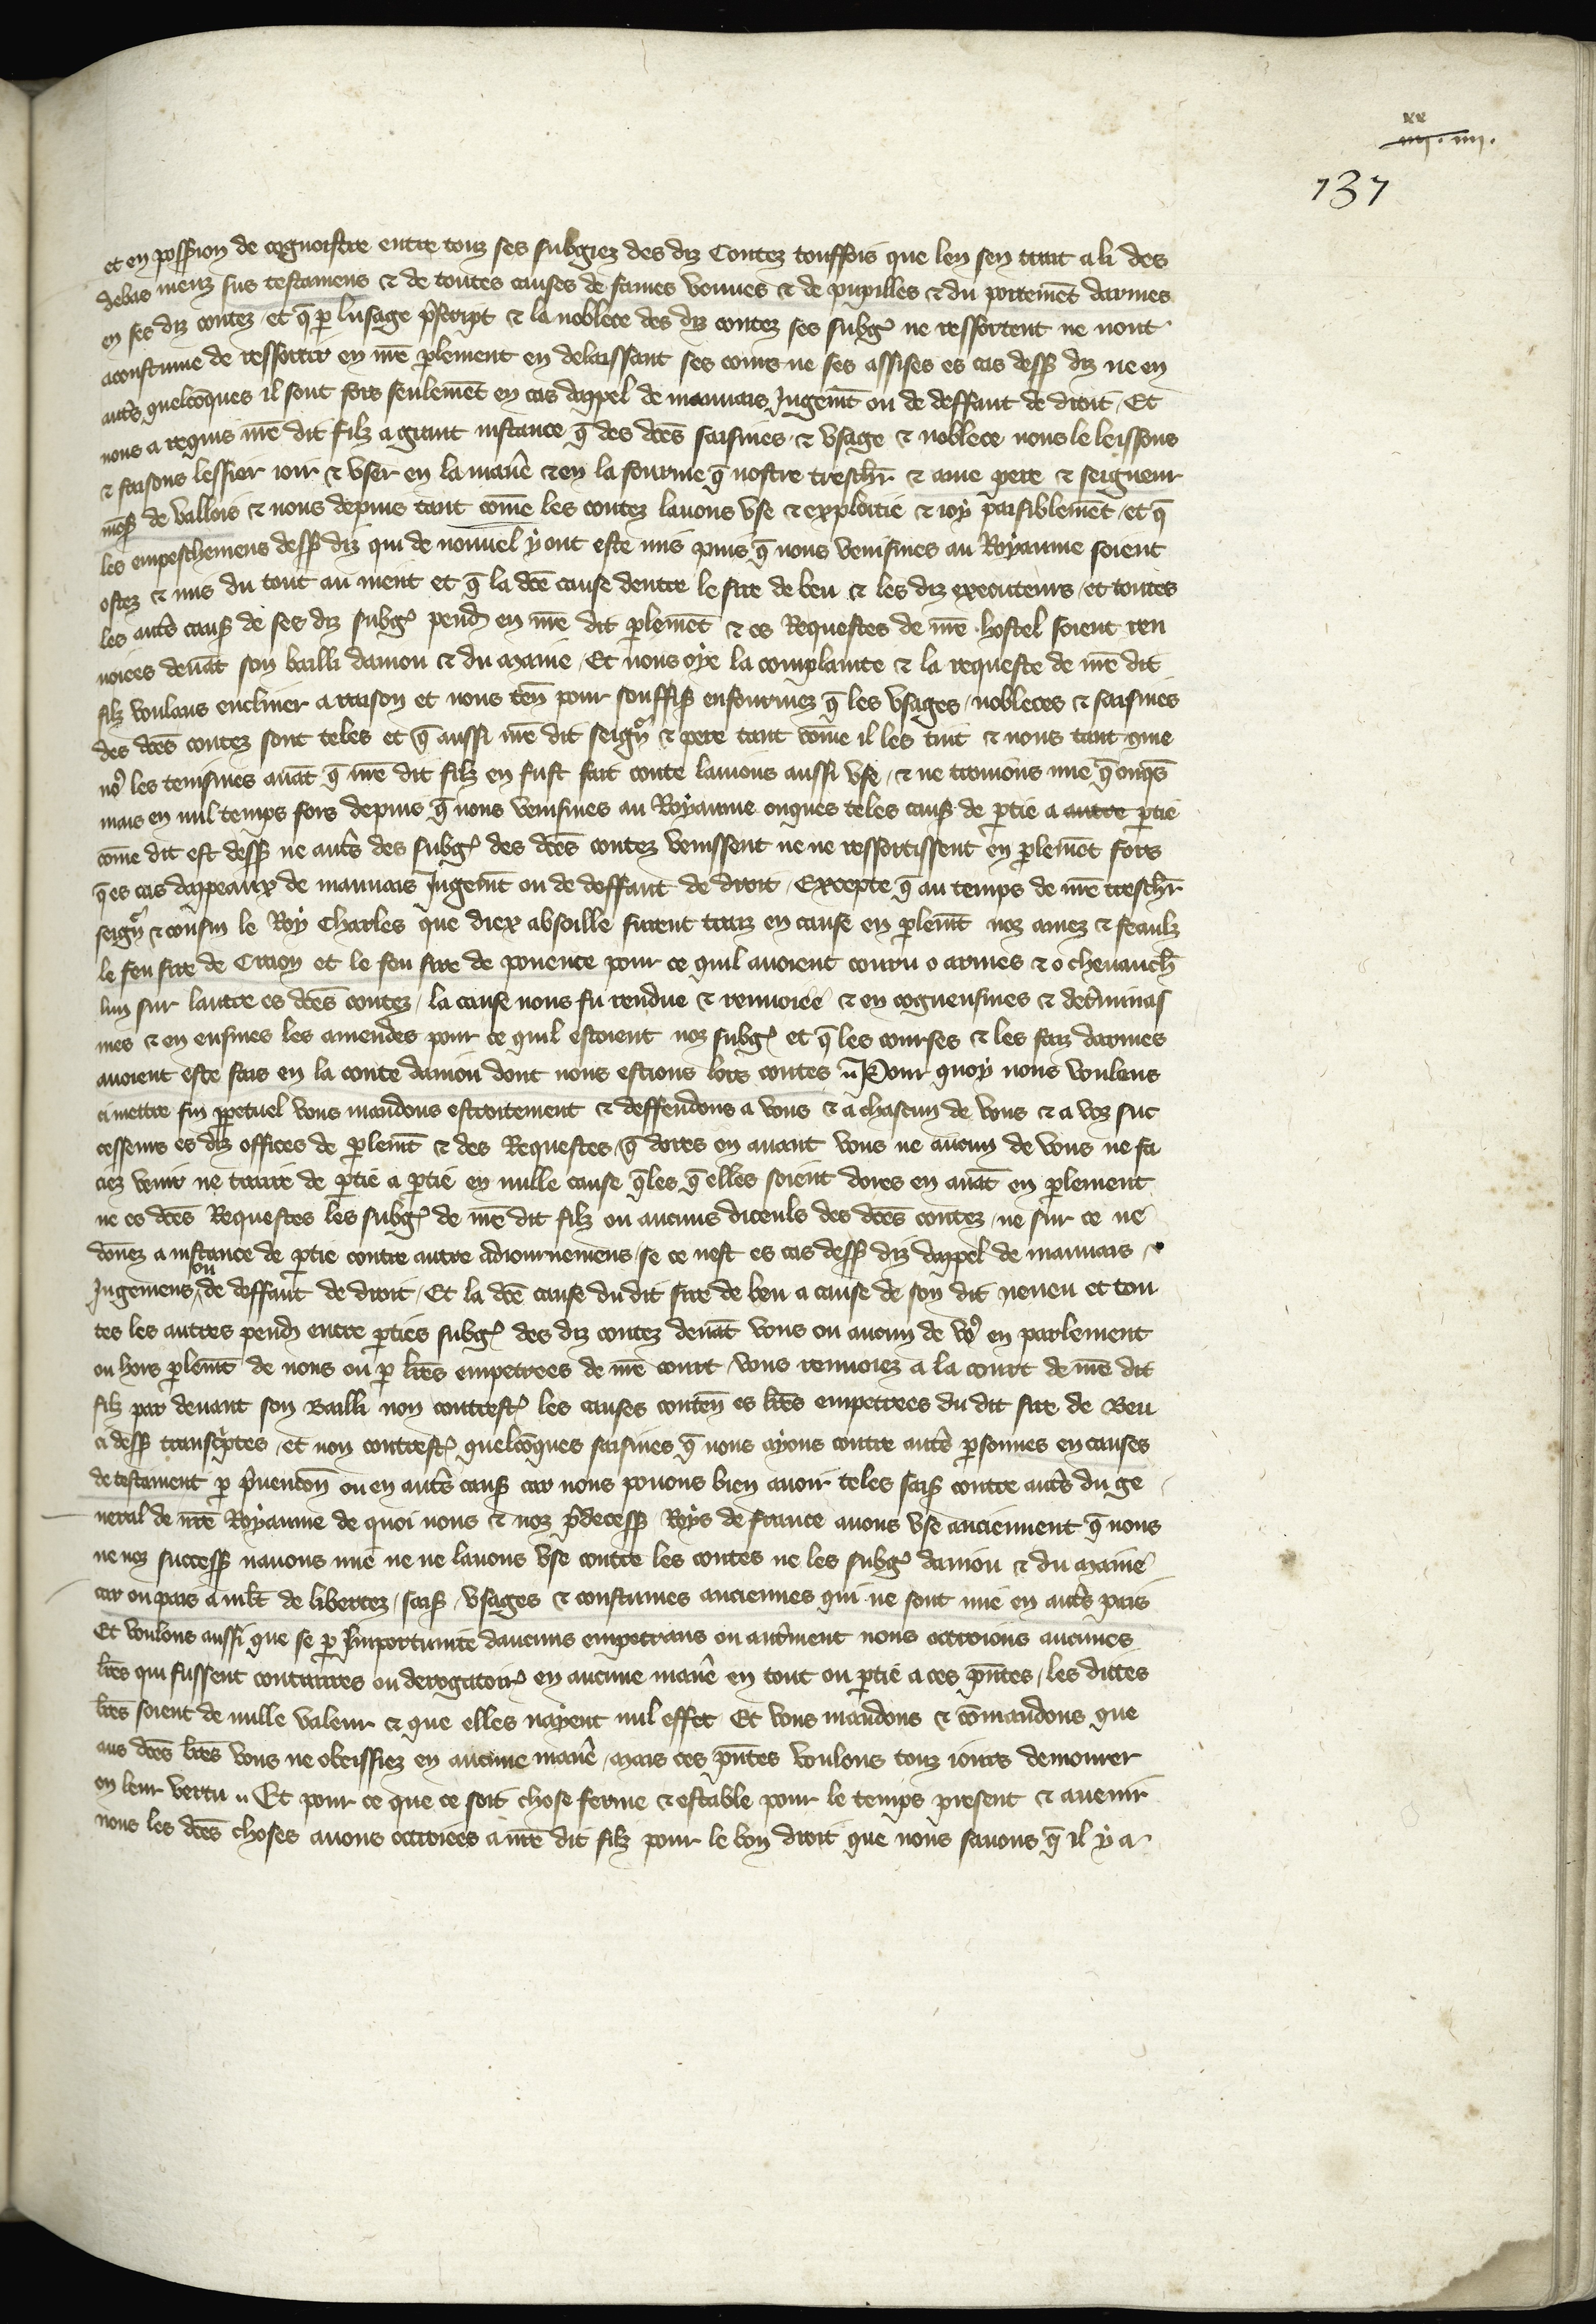 xx
iiij . iiij.
137
et en possion de cognoistre entre touz ses subgiez des diz Contez touffois que len sen trait a li des
debas meuz sus testamens & de toutes causes de fames veuues & de pupilles & du portemẽt darmes
en ses diz contez et q̃ ꝑ lusage p̃script & la noblece des diz contez ses subgꝭ ne ressortent ne nont
acoustume de ressortir en nr̃e ꝑlement en delaissant ses cours ne ses assises es cas dessꝰ diz ne en
autr̃s quelcõques il sont fors seulemẽt en cas dappel de mauuais Jugemt̃ ou de deffaut de droit / Et
nous a requis nr̃e dit filz a grant instance q̃ des dc̃es saisines & vsage & noblece nous le leissons
& faisons lessier ioir & vser en la manẽ & en la fourme q̃ nostre treschr̃ & ame pere & seigneur
mesꝰ de vallois & nous depuis tant cõme les contez lauons vse & exploitie & ioy paisiblemẽt / et q̃
les empeschemens dessꝰ diz qui de nouuel y ont este mis puis q̃ nous venismes au Royaume soient
ostez & mis du tout au nient et q̃ la dc̃e cause dentre le sire de beu & les diz executeurs / et toutes
les autr̃s causꝰ de ses diz subgꝭ pend̃ en nr̃e dit ꝑlemẽt & es Requestes de nr̃e hostel soient ren
uoiees deuãt son bailli daniou & du maine / Et nous oye la complainte & la requeste de nr̃e dit
filz voulans encliner a raison et nous teñ pour souffisꝰ enfourmez q̃ les vsages / nobleces & saisines
des dc̃es contez sont teles et q̃ aussi nr̃e dit seignr̃ & pere tant cõme il les tint & nous tant que
noꝰ les tenismes auãt q̃ nr̃e dit filz en fust fait conte lauions aussi vse / & ne trouuons mie q̃ onqs̃
mais en nul temps fors depuis q̃ nous venismes au Royaume onques teles causꝰ de ꝑtie a autre ꝑtie
cõme dit est dessꝰ ne autr̃s des subgꝭ des dc̃es contez venissent ne ne ressortissent en ꝑlemẽt fors
q̃ es cas dappeaux de mauuais Jugemt̃ ou de deffaut de droit / Excepte q̃ au temps de nr̃e treschr̃
seignr̃ & cousin le Roy Charles que diex absoille furent traiz en cause en ꝑlemt̃ noz amez & feaulz
le feu sire de Craon et le feu sire de ponence pour ce quil auoient couru o armes & o cheuauch̃
lun sur lautre es dc̃es contez / la cause nous fu rendue & renuoiee & en cogneusmes & det̃minas
mes & en eusmes les amendes pour ce quil estoient noz subgꝭ et q̃ les courses & les faiz darmes
auoient este fais en la conte daniou dont nous estions lors contes // Pour quoy nous voulens
ci mettre fin ꝑpetuel vous mandons estroitement & deffendons a vous & a chascun de vous & a voz suc
cesseurs es diz offices de ꝑlemt̃ & des Requestes / q̃ dores en auant vous ne aucun de vous ne fa
ciez venir ne traire de ꝑtie a ꝑtie en nulle cause q̃les q̃ elles soient dores en auãt en ꝑlement
ne es dc̃es Requestes les subgꝭ de nr̃e dit filz ou aucuns diceuls des dc̃es contez / ne sur ce ne
dõnez a instance de ꝑtie contre autre adiournemens / se ce nest es cas dessꝰ diz dappel de mauuais
Jugemens ou de deffaut de droit / Et la dc̃e cause du dit sire de beu a cause de son dit neueu et tou
tes les autres pend̃ entre ꝑties subgꝭ des diz contez deuãt vous ou aucun de voꝰ en parlement
ou hors ꝑlemt̃ de nous ou ꝑ lr̃es empetrees de nr̃e court / vous renuoiez a la court de nr̃e dit
filz par deuant son Bailli non contrestꝭ les causes conteñ es lr̃es empetrees du dit sire de Beu
ci dessꝰ transc̃ptes / et non contrestꝭ quelcõques saisines q̃ nous ayons contre autr̃s ꝑsonnes en causes
de testament ꝑ p̃uencoñ ou en autr̃s causꝰ car nous pouons bien auoir teles saisꝰ contre autr̃s du ge
neral de nr̃e Royaume de quoi nous & noz p̃decessꝰ Roys de france auons vse anciennent q̃ nous
ne noz successꝰ nauons mie ne ne lauons vse contre les contes ne les subgꝭ daniou & du maine
car ou pais a mlt̃ de libertez / saisꝰ / vsages & coustumes anciennes qui ne sont mie en autr̃s pais
Et voulons aussi que se ꝑ Jmportunite daucuns empetrans ou autr̃ment nous octroions aucunes
lr̃es qui fussent contraires ou derogatoirꝭ en aucune manẽ en tout ou ꝑtie a ces pñtes / les dittes
lr̃es soient de nulle valeur & que elles nayent nul effet Et vous mandons & cõmandons que
aus dc̃es lr̃es vous ne obeissiez en aucune manẽ / mais ces pñtes voulons touz iours demourer
en leur vertu // Et pour ce que ce soit chose ferme & estable pour le temps present & auenir
nous les dc̃es choses auons octroiees a nr̃e dit filz pour le bon droit que nous sauons q̃ il y a